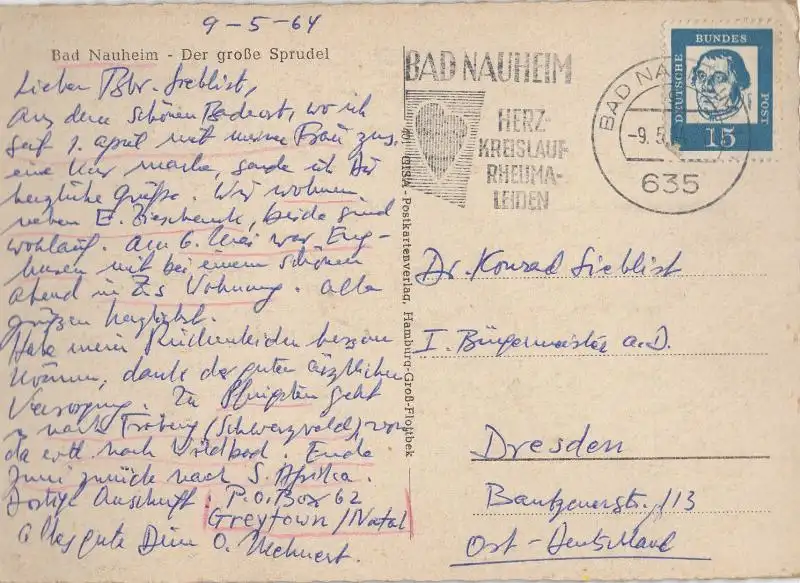 9-5-64
Bad Nauheim - Der große Sprudel
Lieber Bbr. Sieblist,
aus dem schönen Badeort, wo ich
seit 1. april mit meiner Frau zus.
eine Kur mache, sende ich Dir
herzliche Grüße. Wir wohnen
neben E. beide sind
wohlauf. Am 6. Mai war
mit bei einem schönen
abend in Z's Wohnung. alle
grüßen herzlichst.
Habe mein bessern
können, dank der guten ärztlichen
Versorgung. Zu Pfingsten geht
nach (Schwarzwald), von
da evtl nach Wildbad. Ende
Juni zurück nach S. Afrika.
Dortige Anschrift: P.O. Box 62
Greytown/Natal
alles gute Dein O. Mehnert.
CISA - Postkartenverlag, Hamburg-Groß-Flottbek
BAD NAUHEIM
HERZ-
KREISLAUF-
RHEUMA-
LEIDEN
BAD NA
-9.5
635
DEUTSCHE
BUNDES
POST
15
Dr. Konrad Sieblist
I. Bürgermeister a.D.
Dresden
Bautzenerstr. 113
Ost-Deutschland